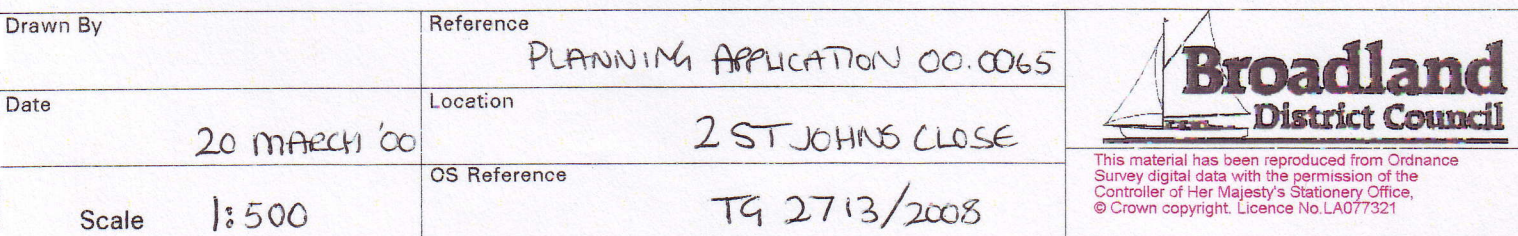 Drawn By
Reference
PLANNING APPLICATION 00.0065
Date
20 MARCH '00
Location
2 ST JOHNS CLOSE
Scale 1:500
OS Reference
TG 2713/2008
Broadland
District Council
This material has been reproduced from Ordnance
Survey digital data with the permission of the
Controller of Her Majesty's Stationery Office,
© Crown copyright. Licence No.LA077321